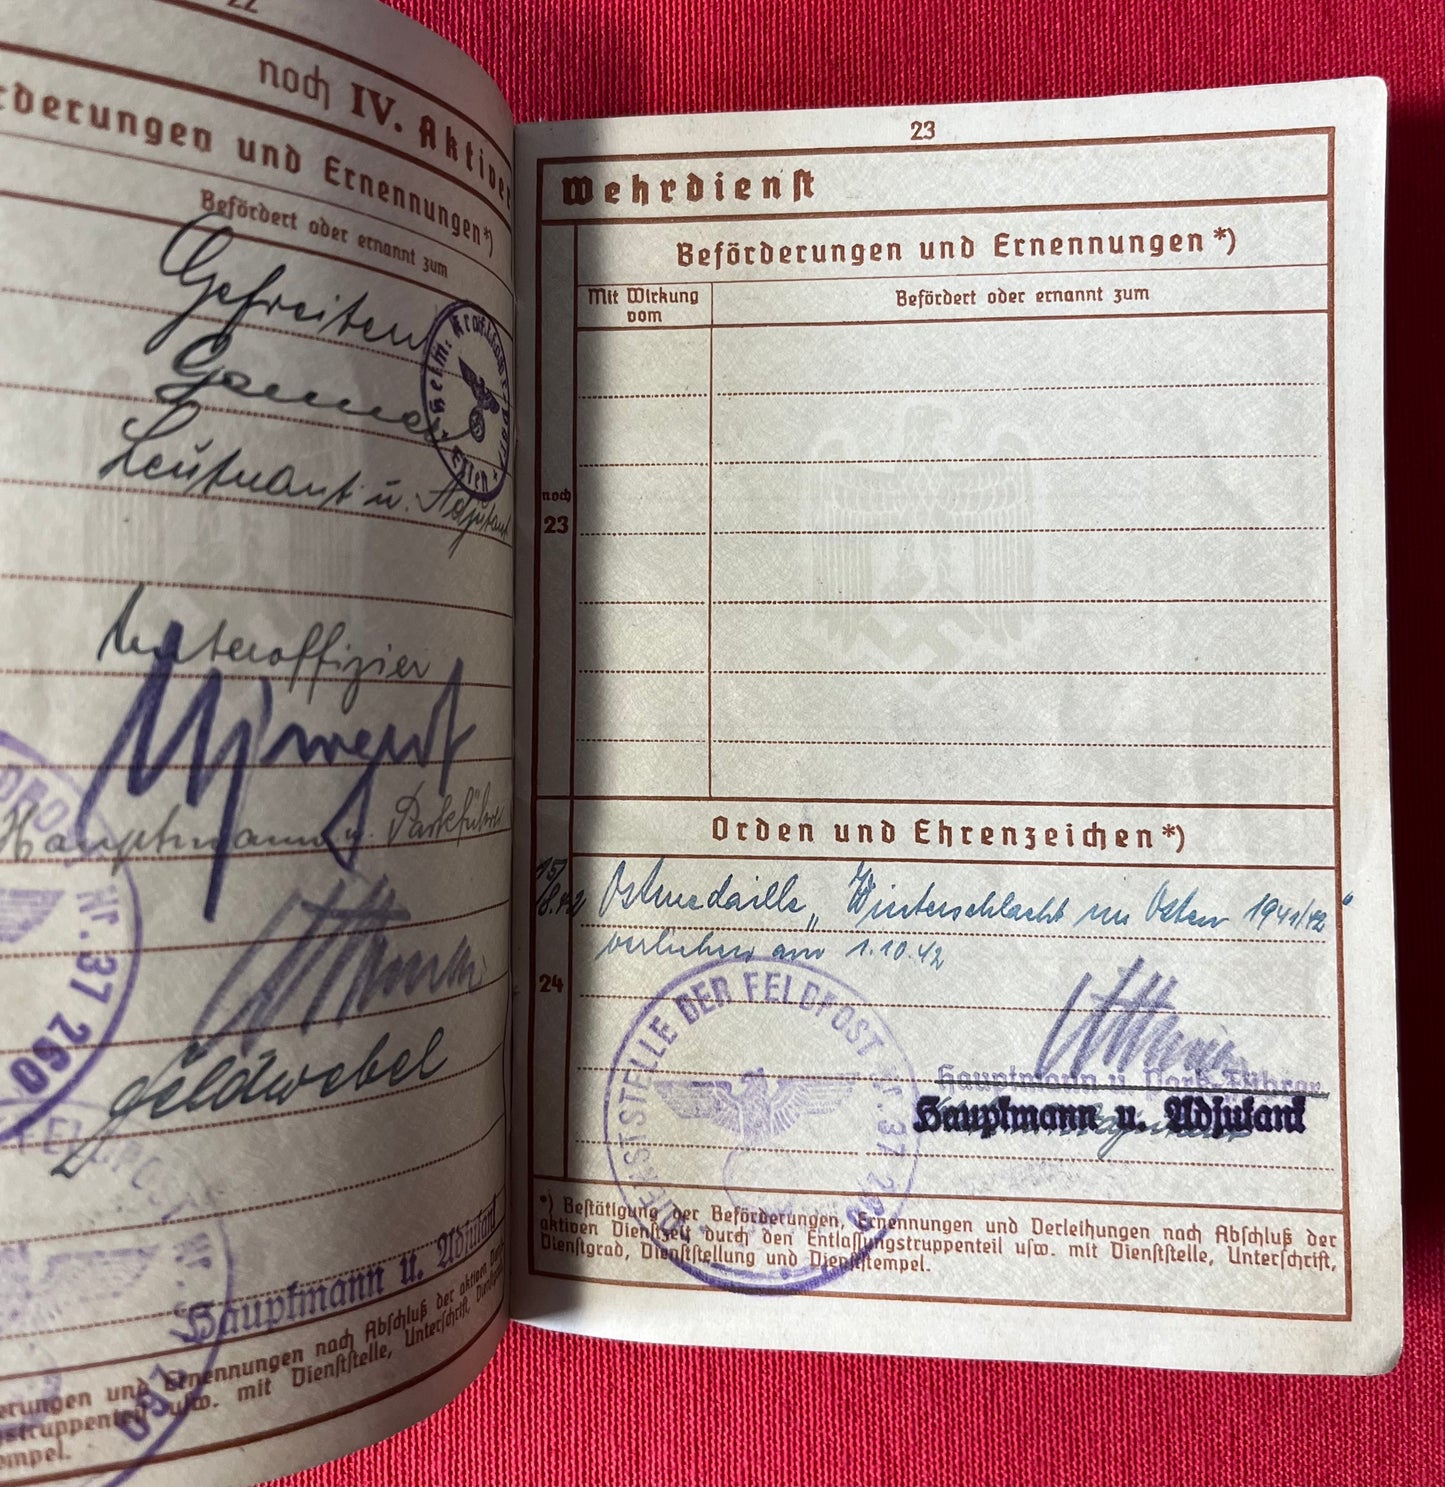 22
noch IV. Aktiver
rderungen und Ernennungen*)
Befördert oder ernannt zum
Gefreiten
Leutnant u. Adjutant
Unteroffizier
Hauptmann u. Parkführer
Feldwebel
Hauptmann u. Adjutant
erungen und Ernennungen nach Abschluß der aktiven Dienst
struppenteil usw. mit Dienststelle, Unterschrift, Dienst
empel.
Nr. 37 260
23
Wehrdienst
Beförderungen und Ernennungen*)
Mit Wirkung vom
Befördert oder ernannt zum
noch
23
Orden und Ehrenzeichen*)
15/8.42 Ostmedaille „Winterschlacht im Osten 1941/42"
verliehen am 1.10.42
24
DIENSTSTELLE DER FELDPOST Nr. 37 260
Hauptmann u. Park-Führer
Hauptmann u. Adjutant
*) Bestätigung der Beförderungen, Ernennungen und Verleihungen nach Abschluß der
aktiven Dienstzeit durch den Entlassungstruppenteil usw. mit Dienststelle, Unterschrift,
Dienstgrad, Dienststellung und Dienststempel.